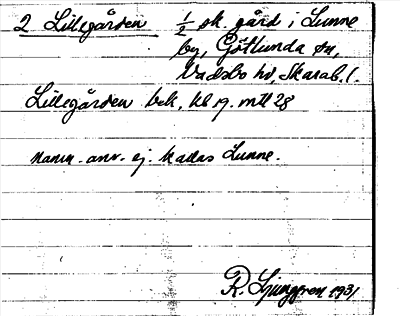 2 Lillegården 1/2 sk. gård i Lunne
by, Götlunda sn,
Vadsbo hd, Skarab. l.
Lillegården bek, kl 19. mtl 28
Namn. anv. ej. kallas Lunne.
R. Ljunggren 1931